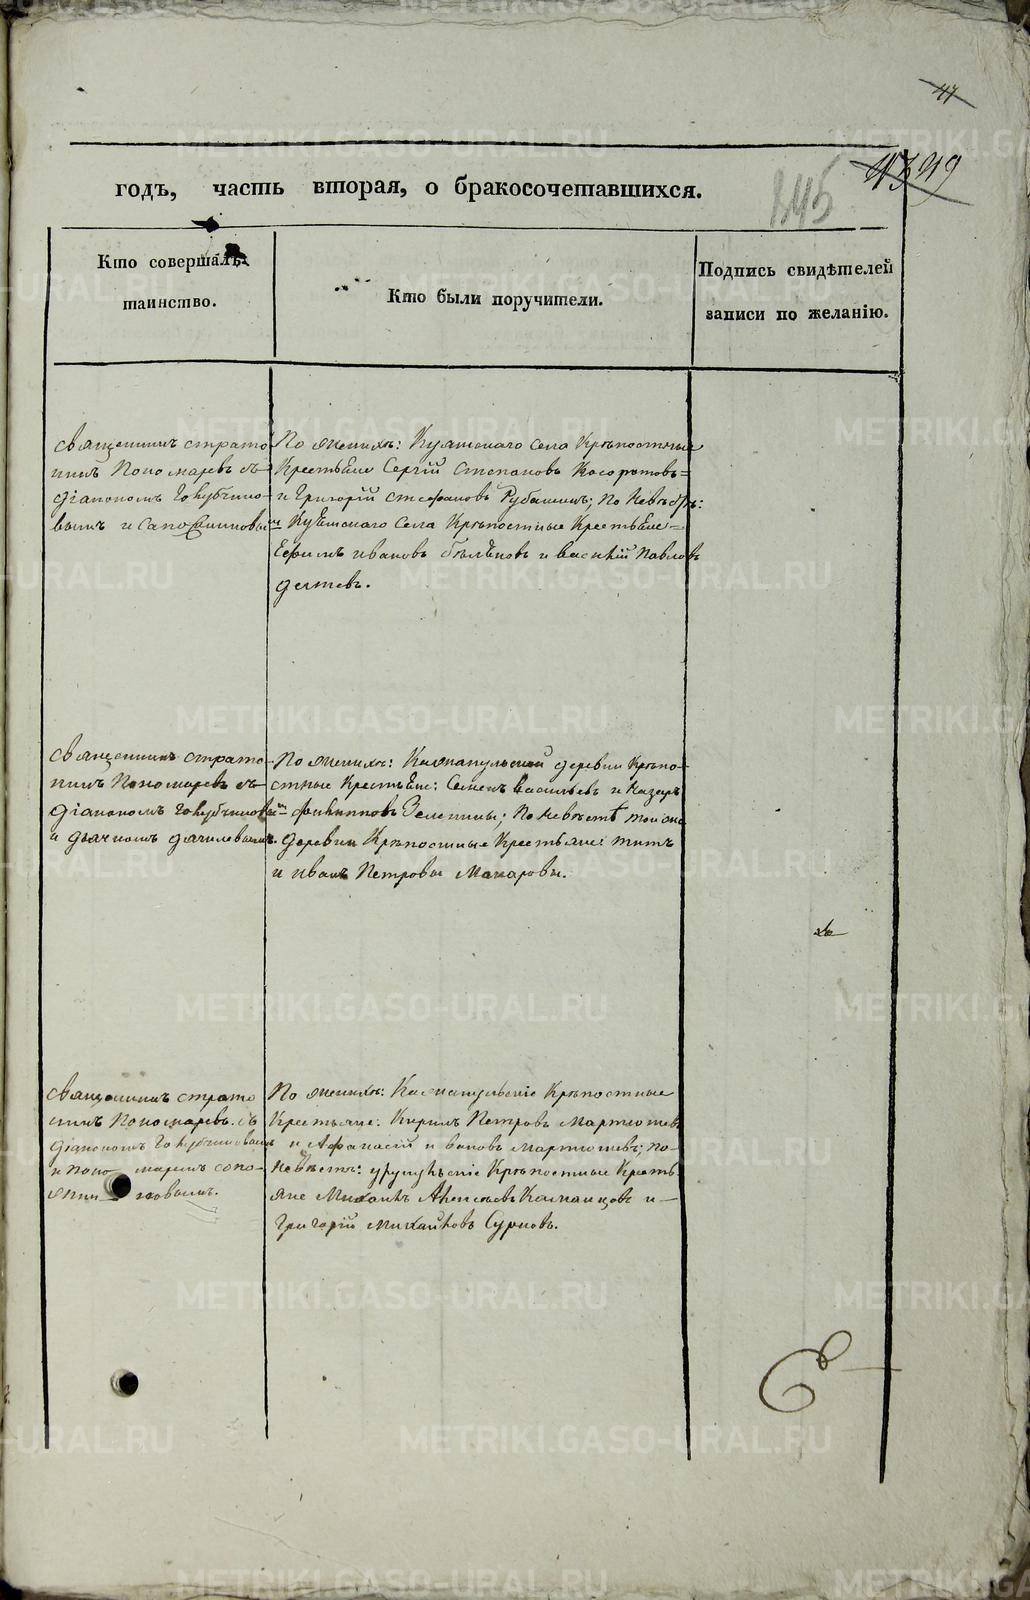 47
годъ, часть вторая, о бракосочетавшихся.
145
43 49
Кто совершалъ
таинство.
Кто были поручители.
Подпись свидѣтелей
записи по желанію.
Священникъ Страто-
никъ Пономаревъ съ
діакономъ Голубчико-
вымъ и Сапожниковы
По женихѣ: Куяшскаго села Крѣпостные
Крестьяне Сергій Степановъ Косоротовъ=
и Григорій Стефановъ Рубашинъ; по невѣстѣ:
Куяшскаго Села Крѣпостные Крестьяне=
Ефимъ Ивановъ и Василій Павловъ
Священникъ Страто-
никъ Пономаревъ съ
діакономъ Голубчиковы
и дьячкомъ
По женихѣ: деревни Крѣпо-
стные Крестьяне: Семенъ Васильевъ и Назаръ
Филипповъ Зеленины; по невѣстѣ той же
деревни Крѣпостные Крестьяне Титъ
и Иванъ Петровы Макаровы.
Священникъ Страто
никъ Пономаревъ съ
діакономъ Голубчиковымъ
и поно маремъ Сапо-
жни ковымъ.
По женихѣ: Крѣпостные
Крестьяне: Кирилъ Петровъ Мартюшевъ
и Афанасій Ивановъ Мартюшевъ; по-
невѣстѣ: Крѣпостные Кресть
яне Михаилъ Алексѣевъ и-
Григорій Михайловъ Сурновъ.
METRIKI.GASO-URAL.RU